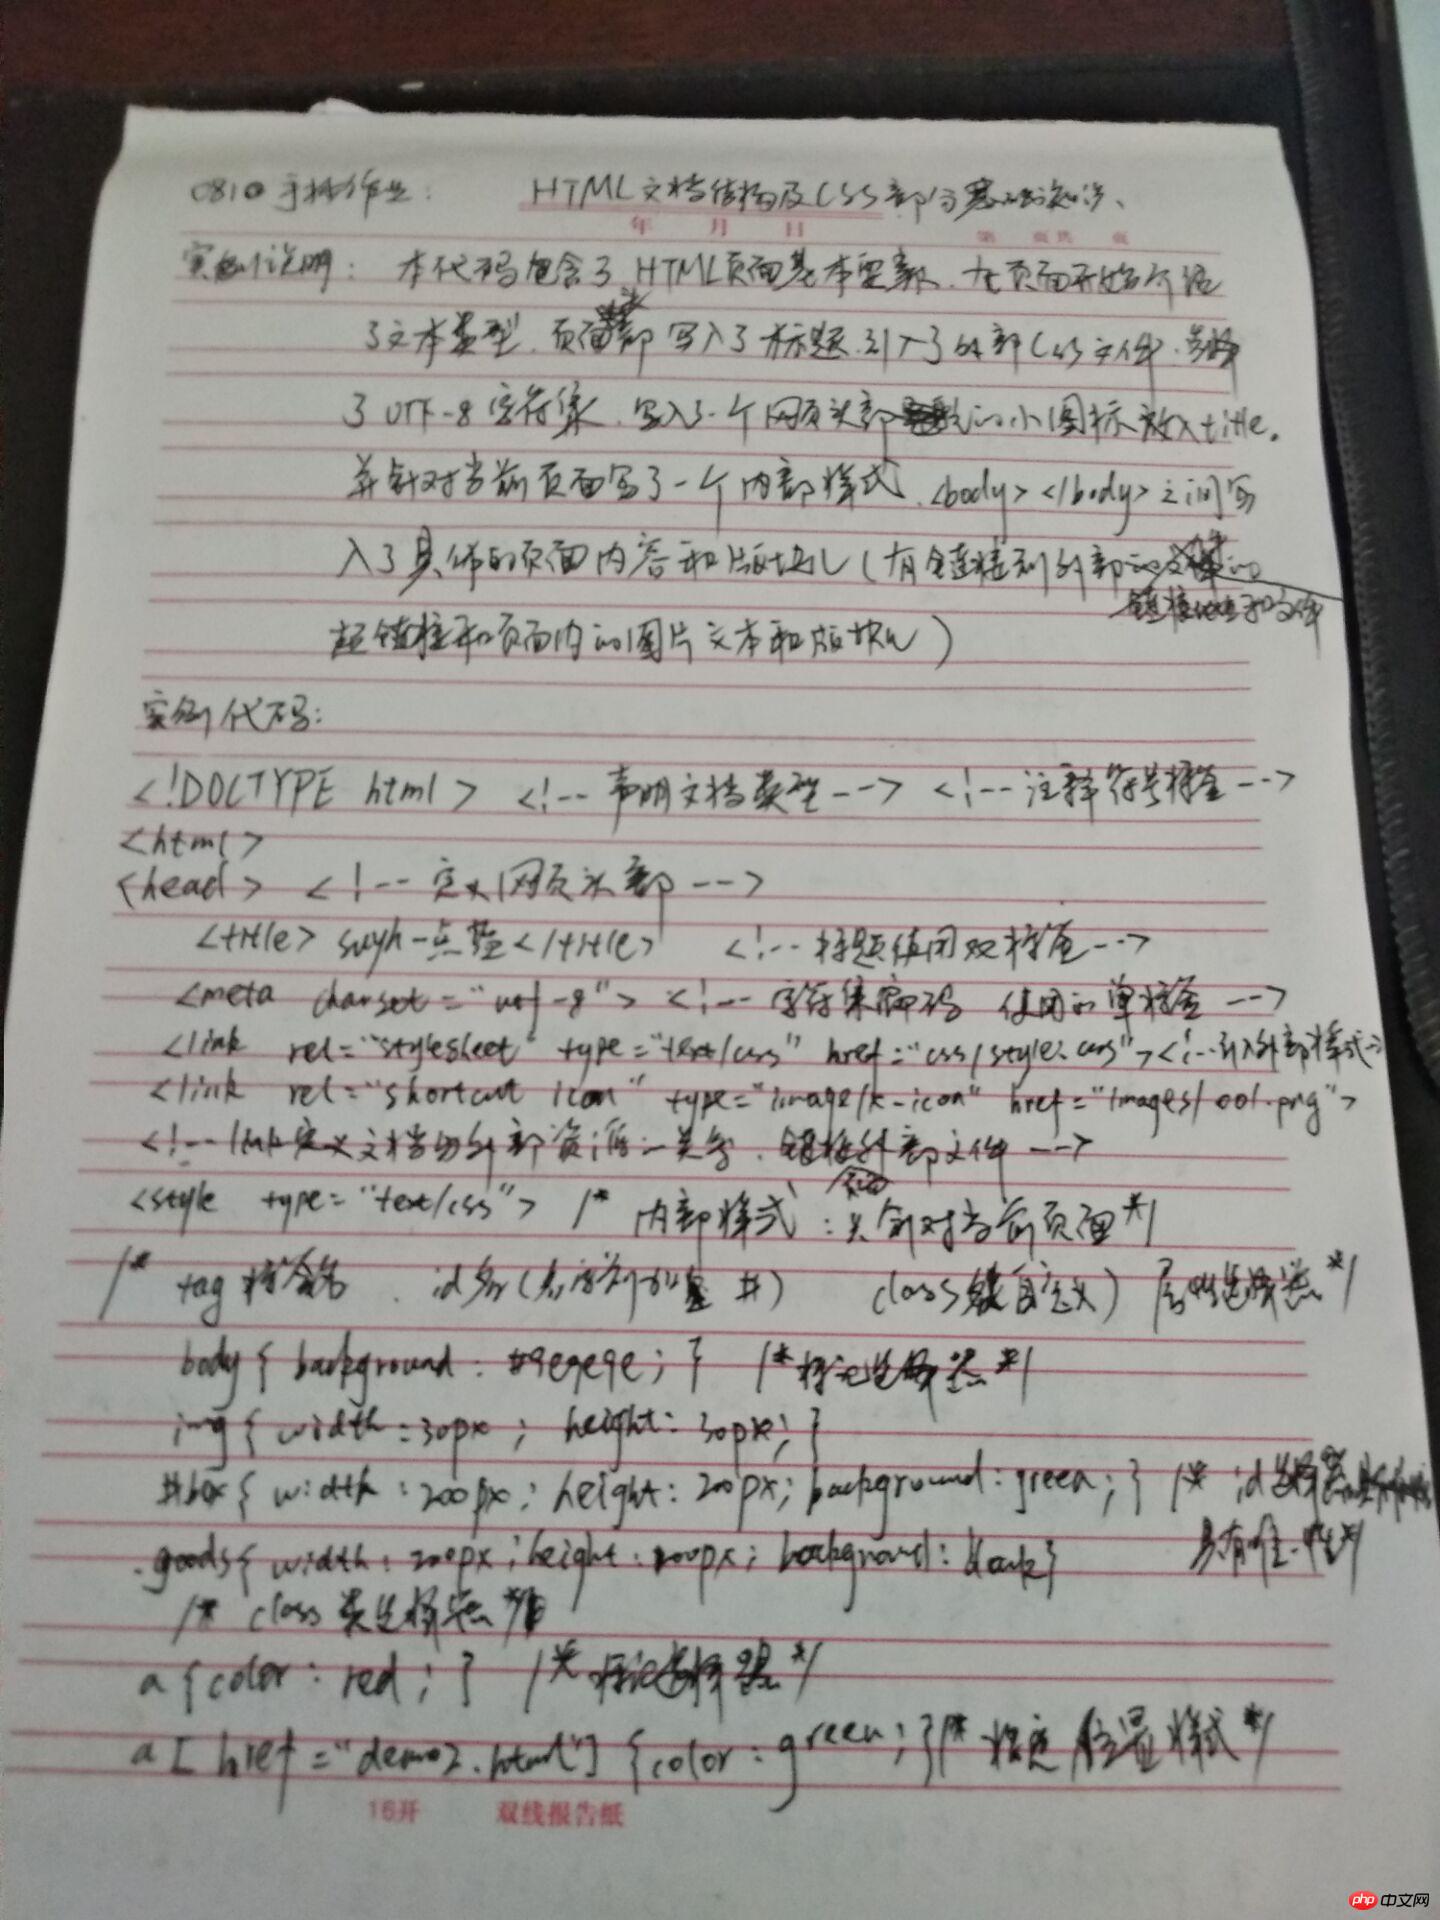 手抄作业: HTML文档结构及CSS部分基础知识、
年 月 日
第 页 共 页
实例说明: 本代码包含了HTML页面基本要素.在页面开始声明
了文本类型.页面头部写入了标题.引入了外部CSS文件.
了UTF-8字符集.写入了一个网页头部的小图标放入title。
并针对当前页面写了一个内部样式.<body></body>之间写
入了具体的页面内容和版块(有链接到外部的
链接地址和文件
超链接和页面内的图片文本和版块)
实例代码:
<!DOCTYPE html> <!--声明文档类型--> <!--注释符号标签-->
<html>
<head> <!--定义网页头部-->
<title>suyh-点赞</title> <!--标题使用双标签-->
<meta charset="utf-8"> <!--字符集编码 使用的单标签-->
<link rel="stylesheet" type="text/css" href="css/style.css"><!--引入外部样式-->
<link rel="shortcut icon" type="image/x-icon" href="images/001.png">
<!--link定义文档与外部资源的关系.链接外部文件-->
<style type="text/css"> /* 内部样式:只针对当前页面*/
/* tag标签名 . id名( #) class 自定义) 属性选择器*/
body{ background: #9e9e9e; } /*标记选择器*/
img{ width:30px; height:30px; }
#box{ width:200px; height:200px; background:green; } /* id选择器
具有唯一性*/
.goods{ width:200px; height:200px; background: }
/* class类选择器*/
a{color:red;} /*标记选择器*/
a[href="demo2.html"]{color:green;}/*指定位置样式*/
16开 双线报告纸
php 中文网